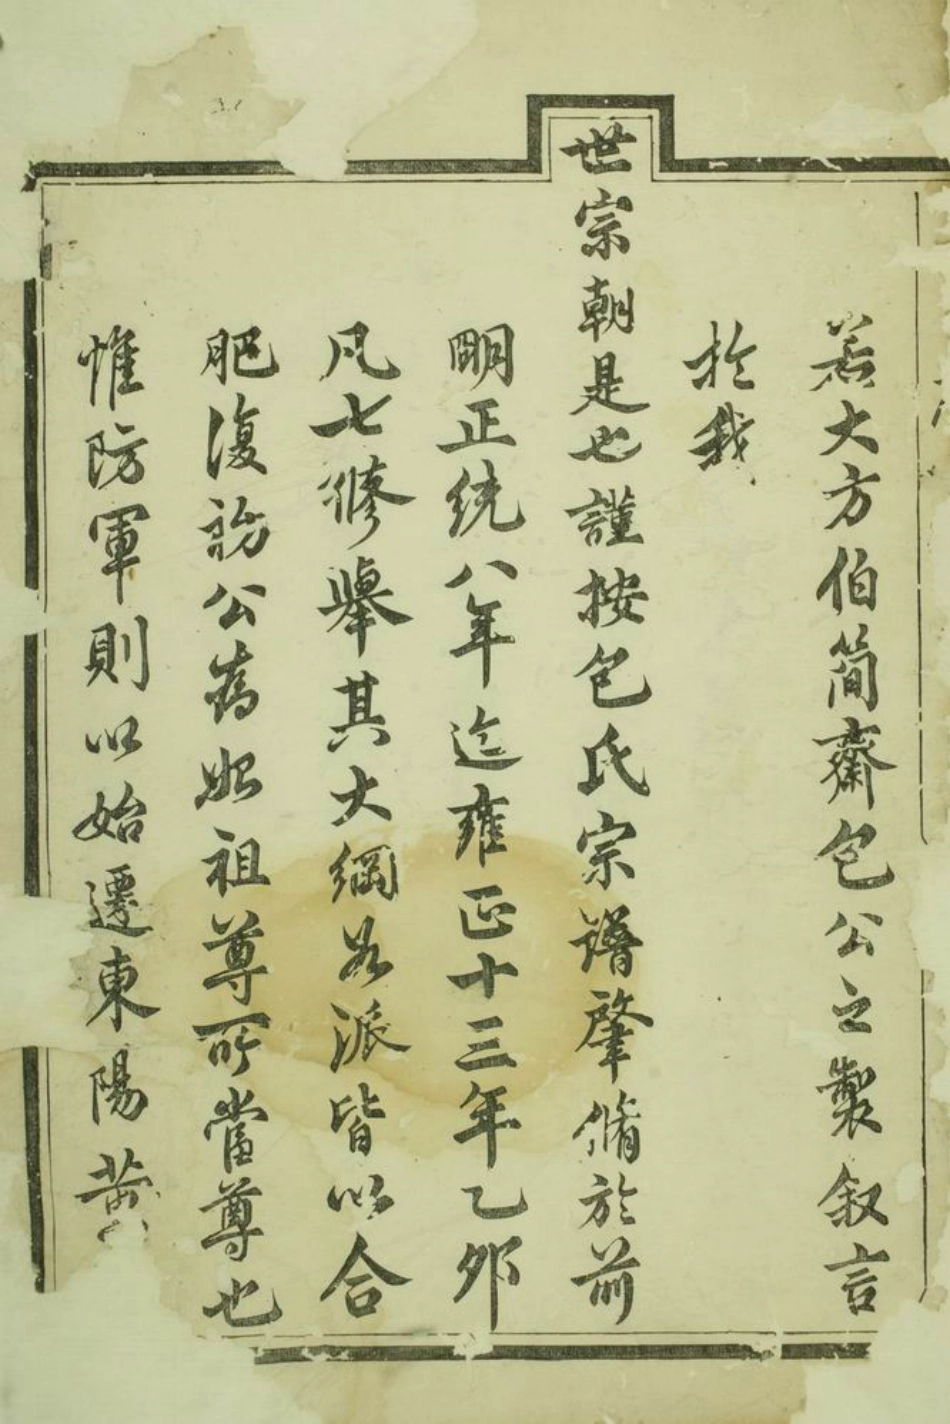 若大方伯簡齋包公之製叙言
於我
世宗朝是也謹按包氏宗譜肇脩於前
明正統八年迄雍正十三年乙卯
凡七修舉其大綱各派皆以合
肥復初公為始祖尊所當尊也
惟防軍則以始遷東陽黃